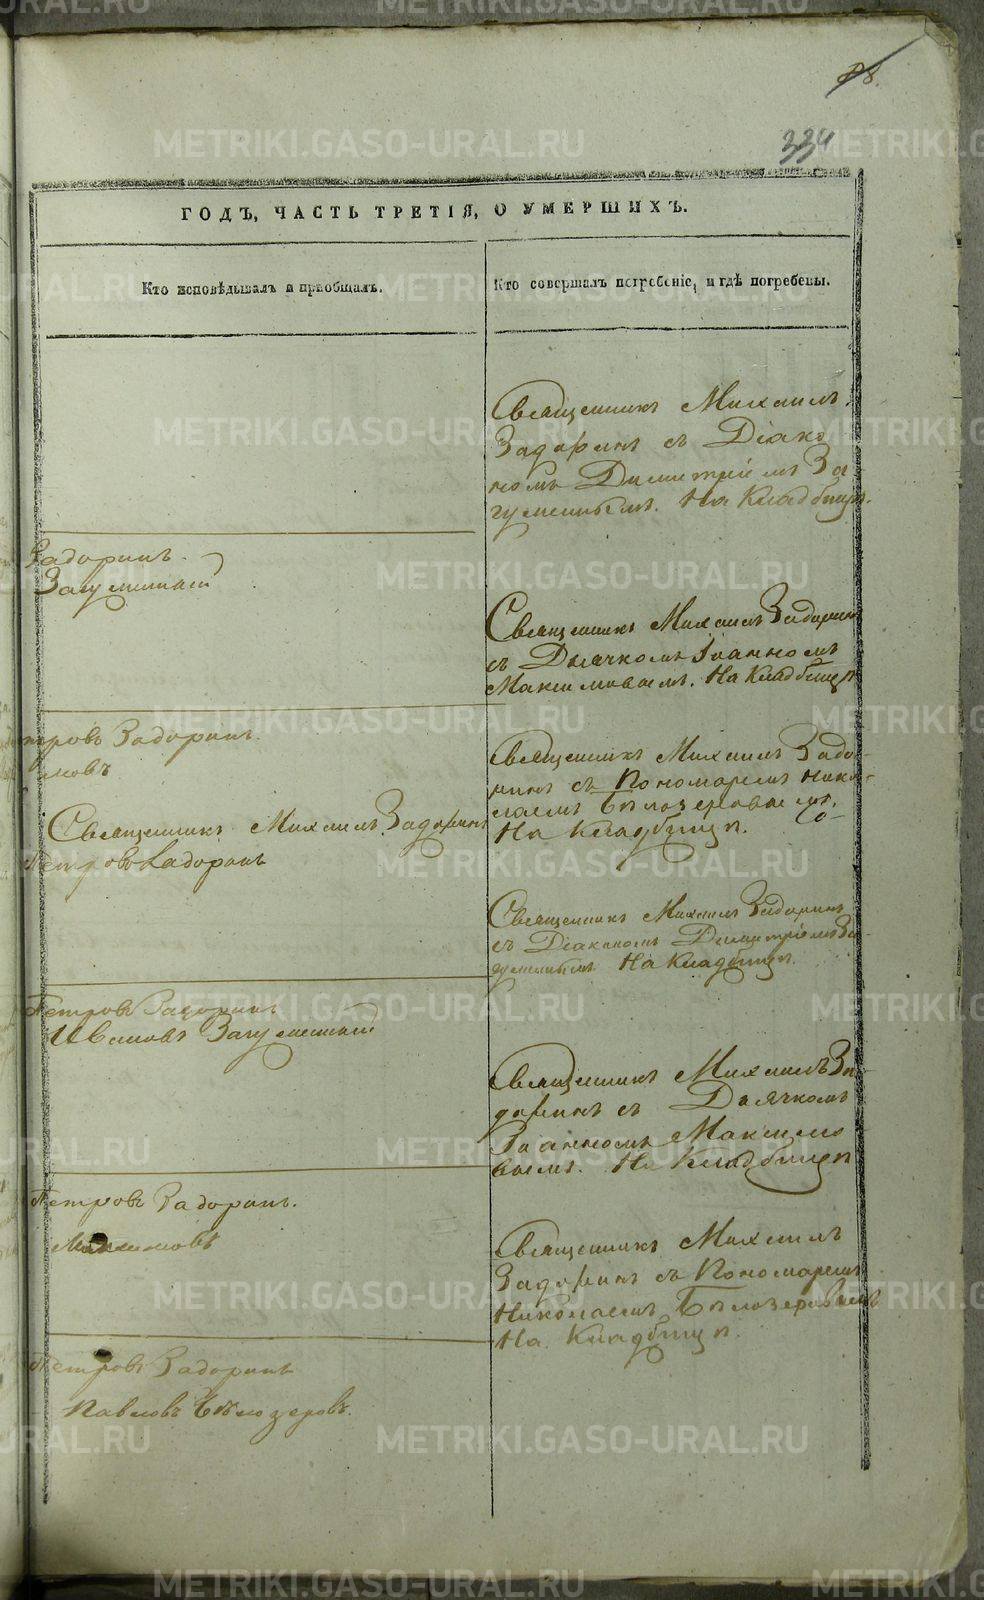 334
ГОДЪ, ЧАСТЬ ТРЕТІЯ, О УМЕРШИХЪ.
Кто исповѣдывалъ и пріобщалъ.
Кто совершалъ погребеніе, и гдѣ погребены.
Священникъ Михаилъ
Задоринъ съ Діако
номъ Димитріемъ За
гуменнымъ. На Кладбищѣ.
Задоринъ.
Загуменный
Священникъ Михаилъ Задоринъ
съ Дьячкомъ Іоанномъ
Максимовымъ. На Кладбищѣ
тровъ Задоринъ.
мовъ
Священникъ Михаилъ Задо-
ринъ съ Пономаремъ Нико-
лаемъ Бѣлозеровымъ.
На Кладбищѣ.
Священникъ Михаилъ Задоринъ
Петровъ Задоринъ
Священникъ Михаилъ Задоринъ
съ Діакономъ Димитріемъ За-
гуменнымъ На Кладбищѣ.
Петровъ Задоринъ
Ивановъ Загуменный
Священникъ Михаилъ За-
доринъ съ Дьячкомъ
Іоанномъ Максимо
вымъ. На Кладбищѣ
Петровъ Задоринъ.
Максимовъ
Священникъ Михаилъ
Задоринъ съ Пономаремъ
Николаемъ Бѣлозеровымъ
На Кладбищѣ.
Петровъ Задоринъ
Павловъ Бѣлозеровъ.
METRIKI.GASO-URAL.RU